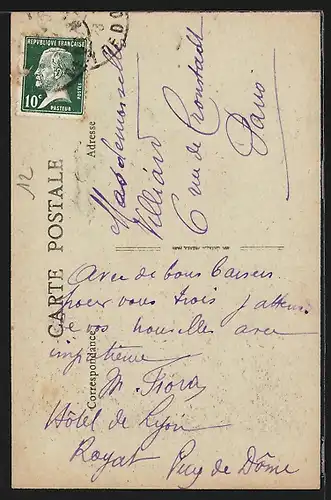 REPUBLIQUE FRANÇAISE
POSTES
10c
PASTEUR
12
CARTE POSTALE
Adresse
Mademoiselle
Villiard
6 rue de Cronstadt
Paris
Correspondance
Avec de bons baisers
pour vous trois j'attens
de vos nouvelles avec
impatience
M. Fiora
Hôtel de Lyon
Royat Puy de Dôme